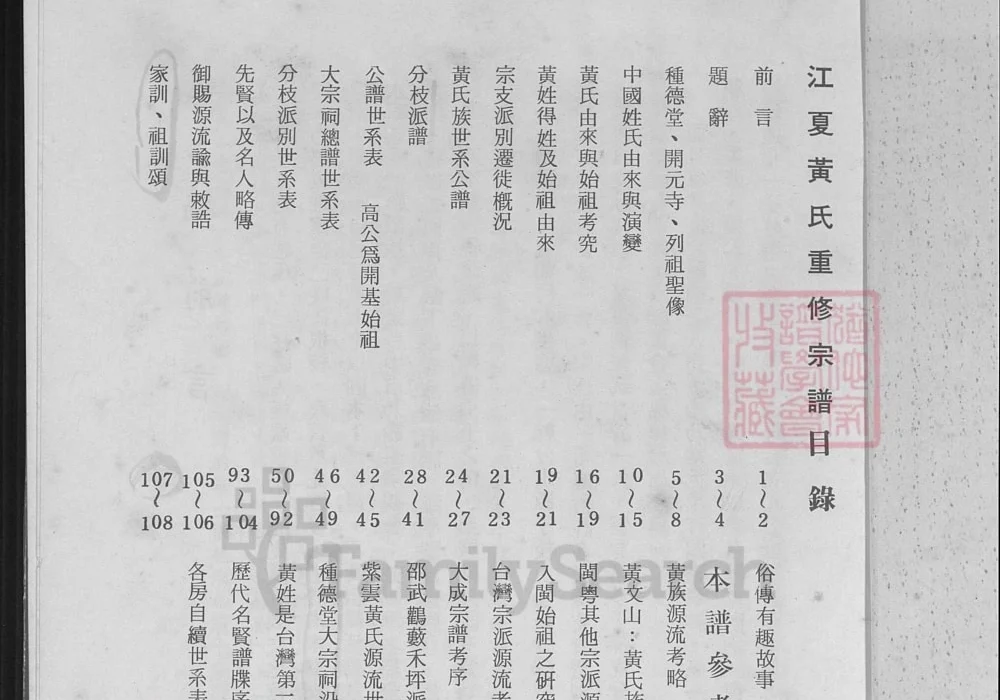 江夏黃氏重修宗譜目錄
前言 1~2
題辭 3~4
種德堂、開元寺、列祖聖像 5~8
中國姓氏由來與演變 10~15
黃氏由來與始祖考究 16~19
黃姓得姓及始祖由來 19~21
宗支派別遷徙概況 21~23
黃氏族世系公譜 24~27
分枝派譜 28~41
公譜世系表 高公爲開基始祖 42~45
大宗祠總譜世系表 46~49
分枝派別世系表 50~92
先賢以及名人略傳 93~104
御賜源流諭與敕誥 105~106
家訓、祖訓頌 107~108
俗傳有趣故事
本譜參
黃族源流考略
黃文山：黃氏族
閩粵其他宗派源
入閩始祖之研究
台灣宗派源流考
大成宗譜考序
邵武鸛藪禾坪派
紫雲黃氏源流世
種德堂大宗祠沿
黃姓是台灣第
歷代名賢譜牒序
各房自續世系表
FamilySearch